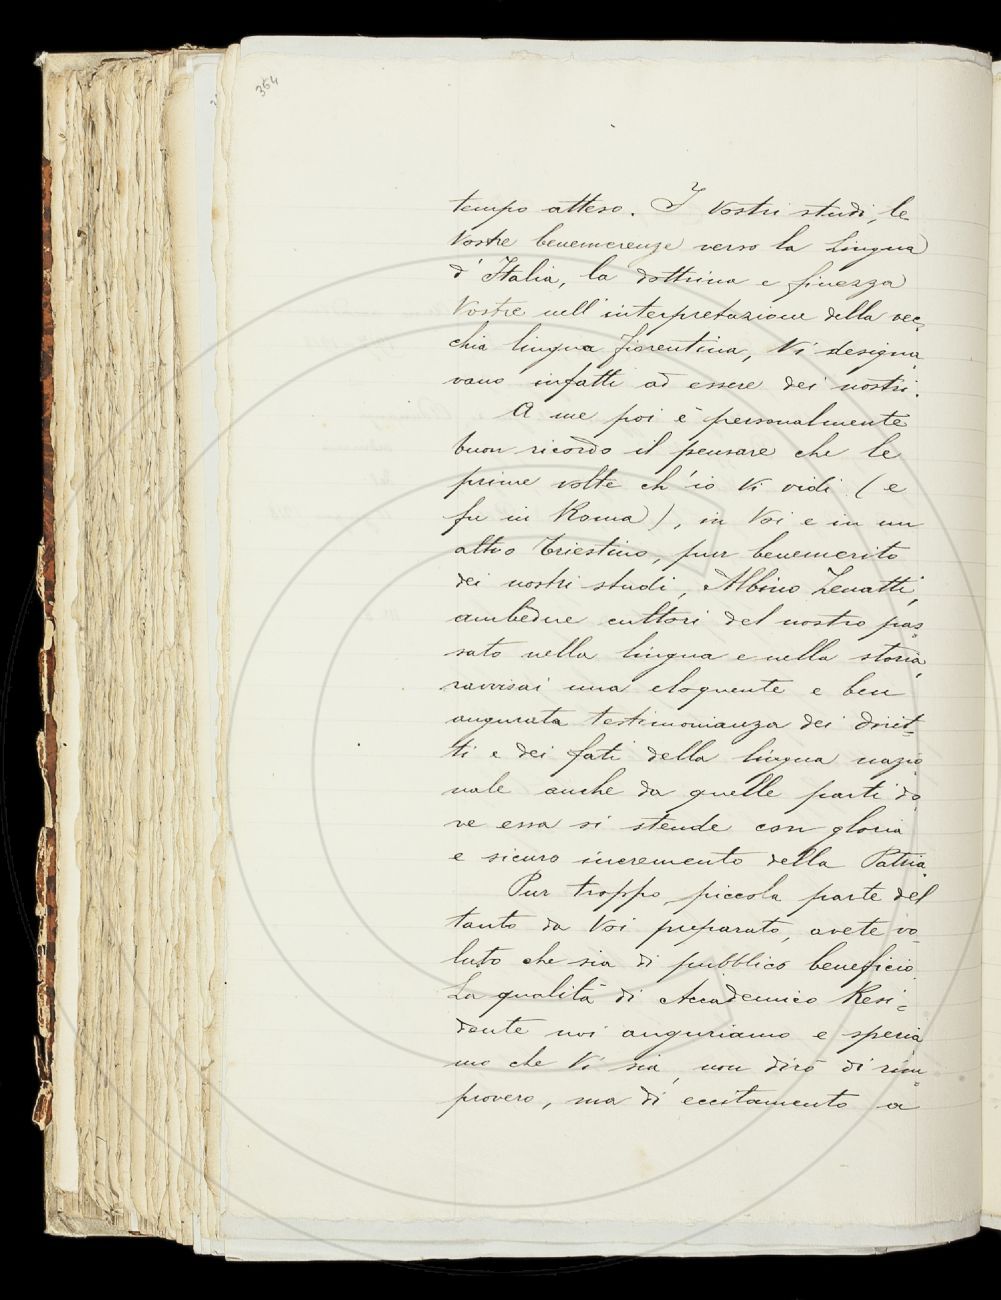 364
tempo atteso. I Vostri studi, le
Vostre benemerenze verso la Lingua
d'Italia, la dottrina e finezza
Vostre nell'interpretazione della vec=
chia lingua fiorentina, Vi designa=
vano infatti ad essere dei nostri.
A me poi è personalmente
buon ricordo il pensare che le
prime volte ch'io Vi vidi (e
fu in Roma), in Voi e in un
altro triestino, pur benemerito
dei nostri studi, Albino Zenatti,
ambedue cultori del nostro pas=
sato nella lingua e nella storia,
ravvisai una eloquente e ben
augurata testimonianza dei dirit=
ti e dei fati della lingua nazio=
nale anche da quelle parti do=
ve essa si stende con gloria
e sicuro incremento della Patria.
Pur troppo piccola parte del
tanto da Voi preparato, avete vo=
luto che sia di pubblico beneficio.
La qualità di Accademico Resi=
dente noi auguriamo e speria=
mo che Vi sia, non dirò di rim=
provero, ma di eccitamento a